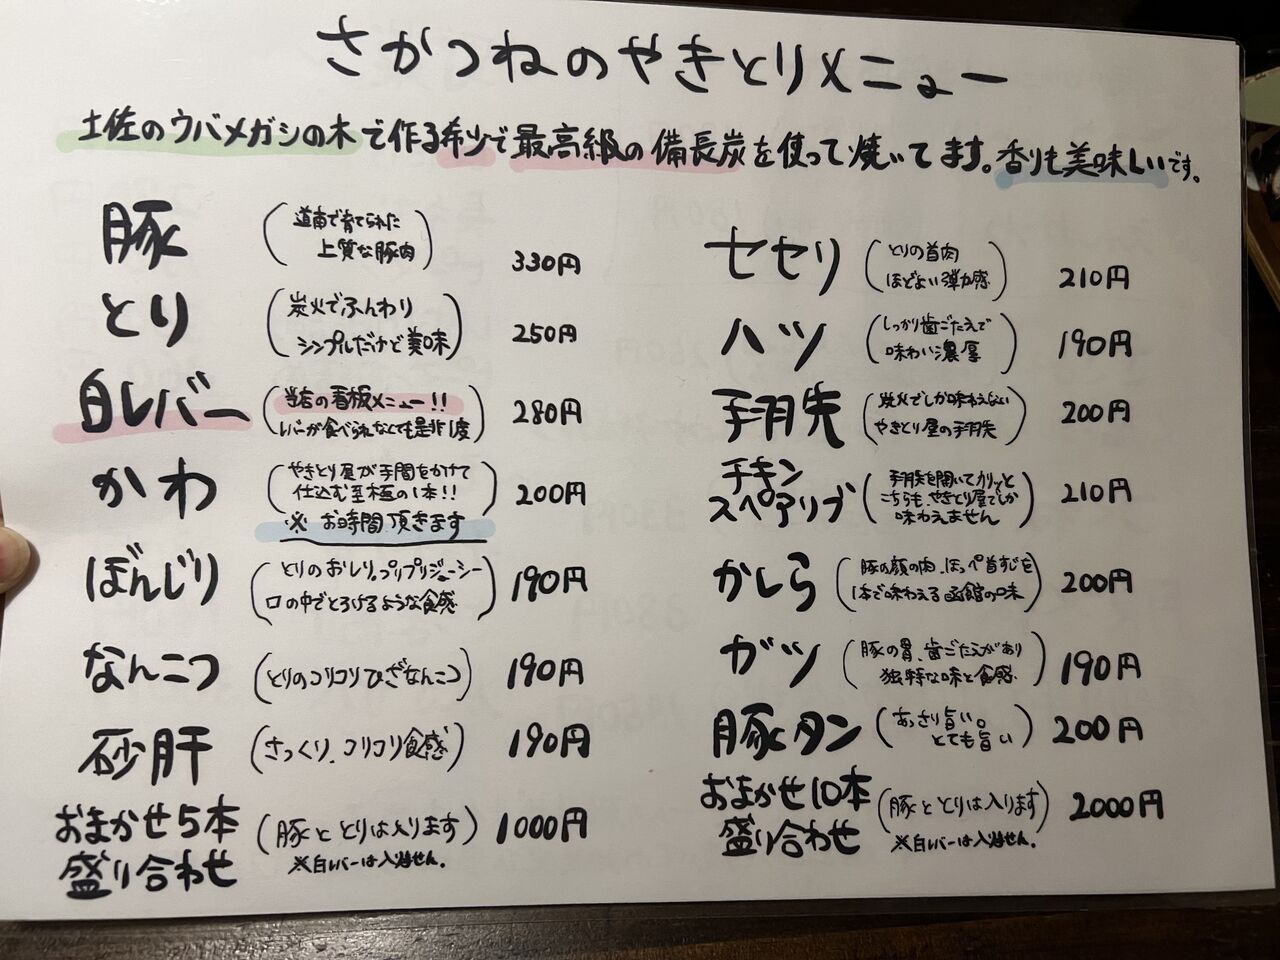 さかつねのやきとりメニュー
土佐のウバメガシの木で作る希少で最高級の備長炭を使って焼いてます。香りも美味しいです。
豚
(道南で育てられた
上質な豚肉)
330円
とり
(炭火でふんわり
シンプルだけど美味)
250円
白レバー
(当店の看板メニュー!!
レバーが食べられなくても是非1度)
280円
かわ
(やきとり屋が手間をかけて
仕込む至極の1本!!)
※お時間頂きます
200円
ぼんじり
(とりのおしり。プリプリジューシー
口の中でとろけるような食感)
190円
なんこつ
(とりのコリコリひざなんこつ)
190円
砂肝
(さっくり、コリコリ食感)
190円
おまかせ5本
盛り合わせ
(豚ととりは入ります)
※白レバーは入りません。
1000円
セセリ
(とりの首肉
ほどよい弾力感)
210円
ハツ
(しっかり歯ごたえで
味わい濃厚)
190円
手羽先
(炭火でしか味わえない
やきとり屋の手羽先)
200円
チキン
スペアリブ
(手羽先を開いてカリッと
こちらも、やきとり屋でしか
味わえません)
210円
かしら
(豚の顔の肉、ほっぺ首すじを
1本で味わえる函館の味)
200円
ガツ
(豚の胃、歯ごたえがあり
独特な味と食感)
190円
豚タン
(あっさり旨い。
とても旨い)
200円
おまかせ10本
盛り合わせ
(豚ととりは入ります)
※白レバーは入りません。
2000円